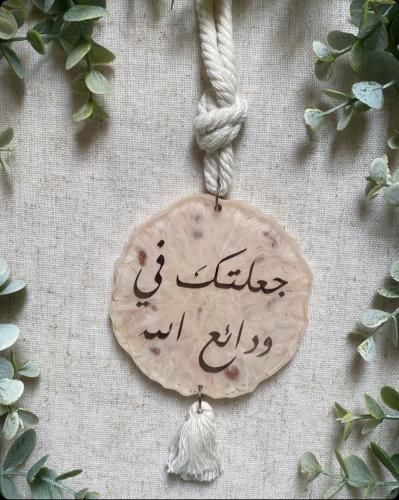 جعلتك في
ودائع الله